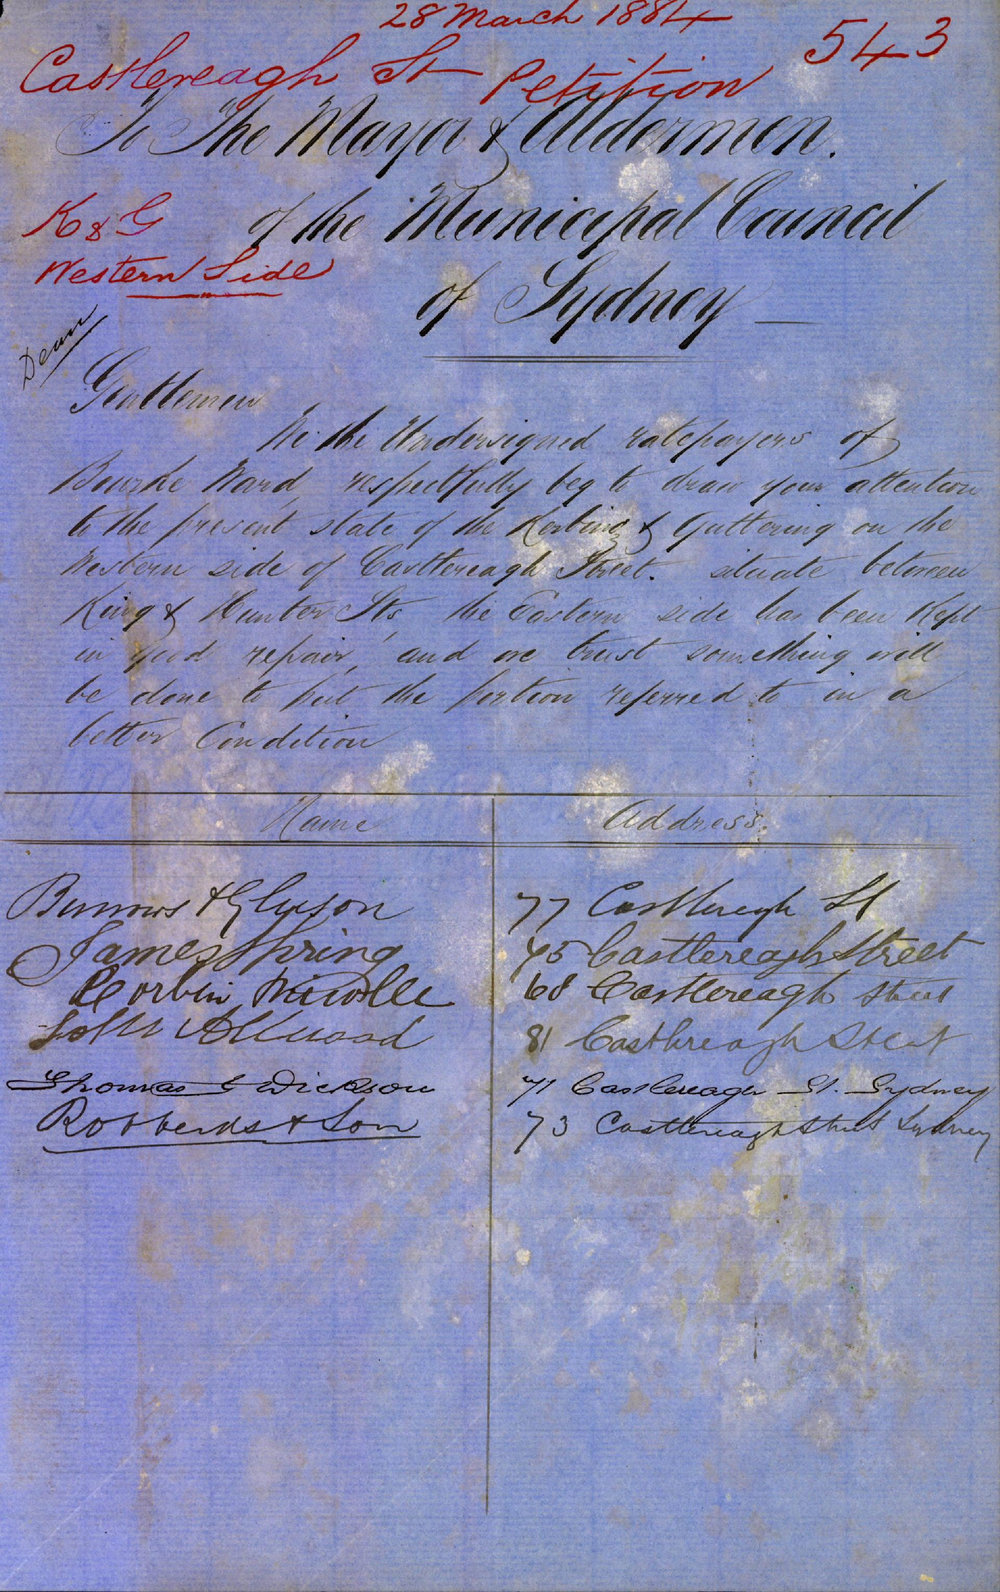 28 March 1884
543
Castlereagh St Petition
To The Mayor & Aldermen.
K & G
of the Municipal Council
Western Side
of Sydney
Gentlemen
We the Undersigned ratepayers of
Bourke Ward, respectfully beg to draw your attention
to the present state of the Kerbing & Guttering on the
Western side of Castlereagh Street. situate between
King & Hunter Sts, the Eastern side has been Kept
in good repair, and we trust something will
be done to put the portion referred to in a
better Condition
Name Address.
Burrows & Gleeson 77 Castlereagh St
James Spring 45 Castlereagh Street
Corbin Nicolle 68 Castlereagh Street
Allwood 81 Castlereagh Street
Thomas Dickson 71 Castlereagh St. Sydney
Robberds & Son 73 Castlereagh Street Sydney